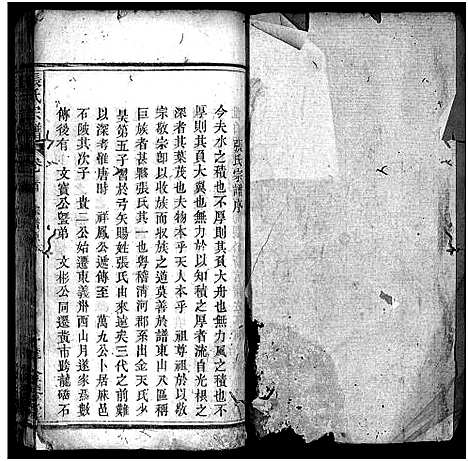 張氏宗譜序
今夫水之積也不厚則其負大舟也無力風之積也不
厚則其負大翼也無力於以知積之厚者流自光根之
深者其葉茂也夫物本乎天人本乎 祖尊祖於以敬
宗敬宗卽以收族而收族之道莫善於譜東山 區稱
巨族者甚夥張氏其一也粵稽淸河郡系出金天氏少
昊第五子 於弓矢賜姓張氏由來遠矣三代之前難
以深考惟唐時 祥鳳公遞傳至 萬九公卜居麻邑
不陂其次子 貴二公始遷東義 西山月遂家焉數
傳後有 文寶公曁弟 文彬公同遷黃市 龍 石
張氏宗譜 卷首